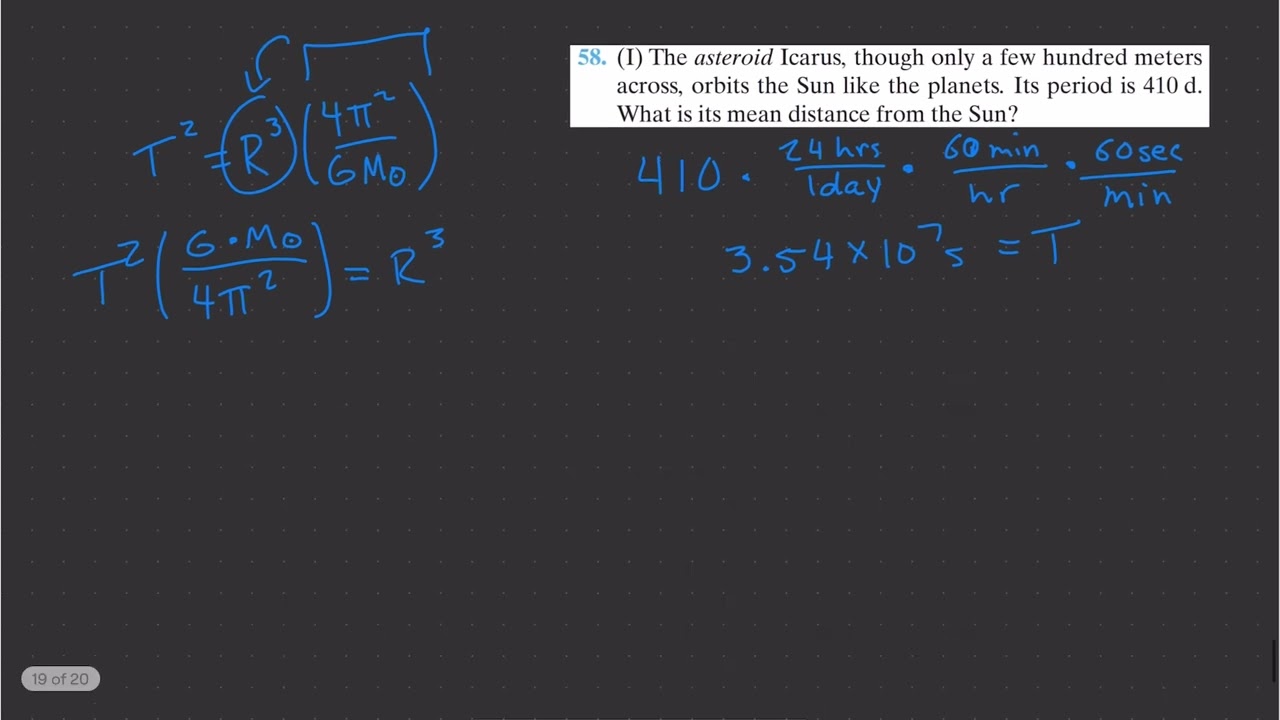 58. (I) The asteroid Icarus, though only a few hundred meters
across, orbits the Sun like the planets. Its period is 410 d.
What is its mean distance from the Sun?
T² = R³ (4π² / GM⊙)
T² (G·M⊙ / 4π²) = R³
410 · 24 hrs / 1day · 60 min / hr · 60 sec / min
3.54 × 10⁷ s = T
19 of 20